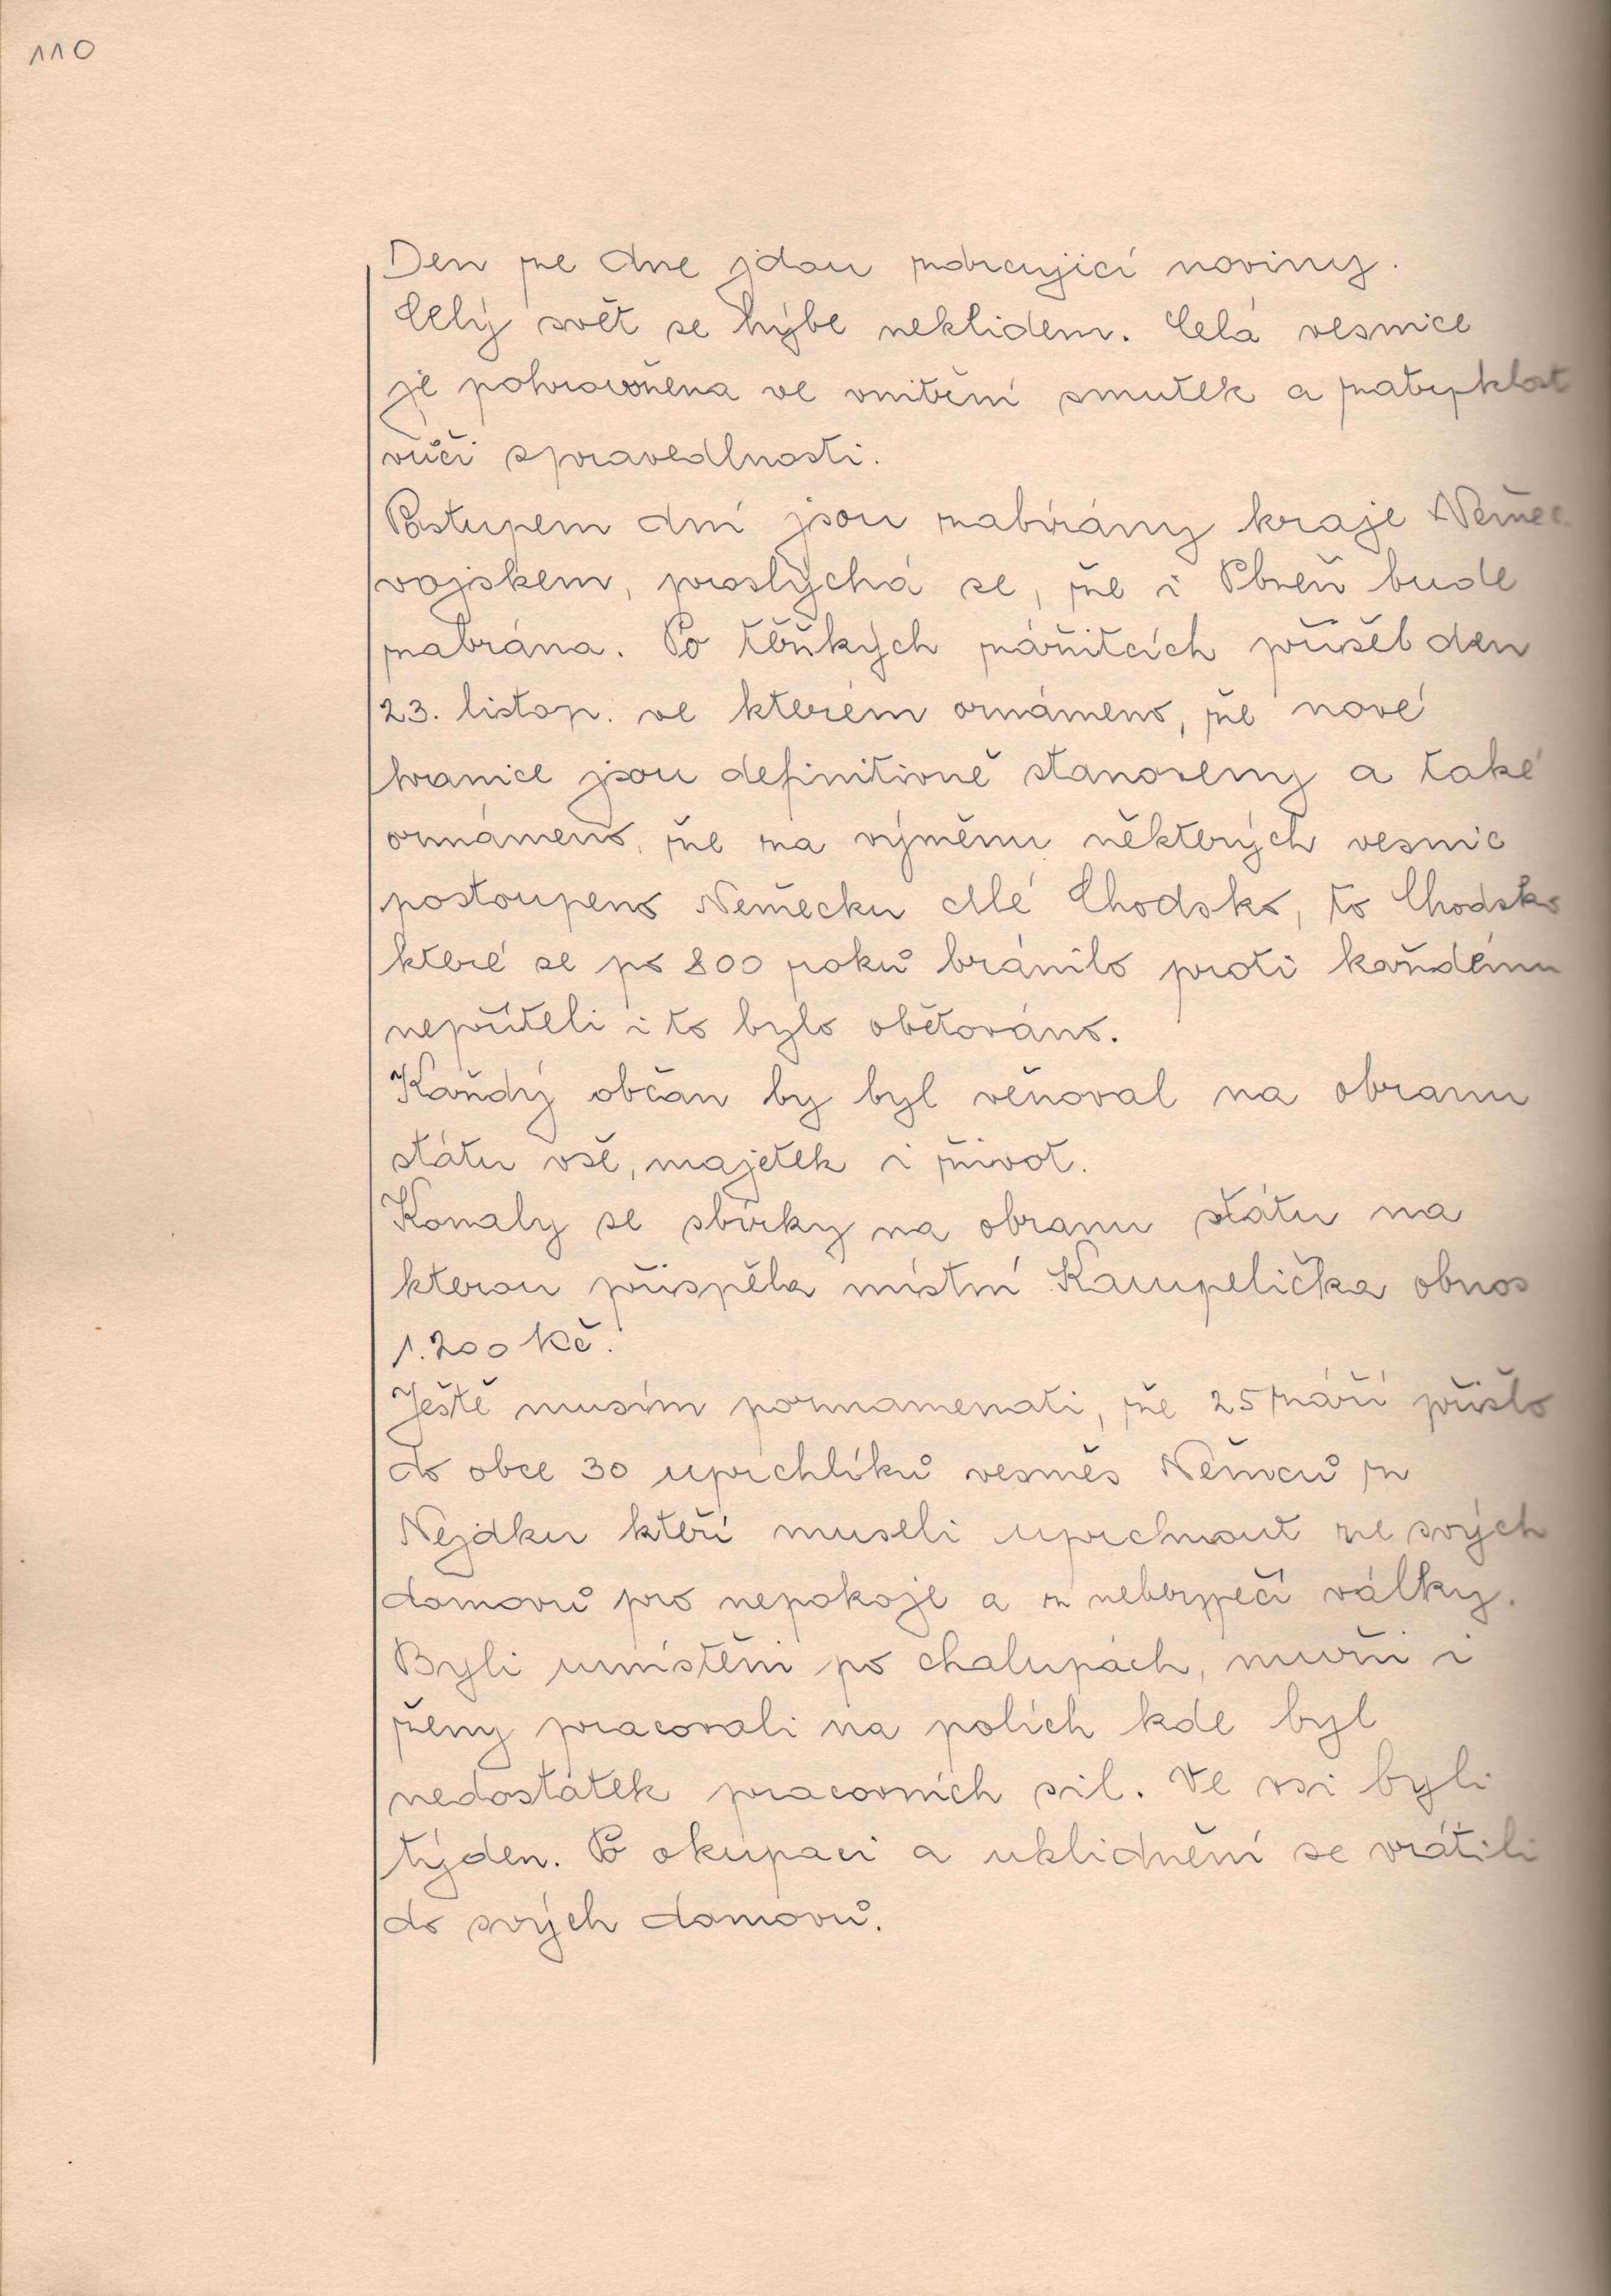 110
Den ze dne jdou zdrcující noviny.
Celý svět se hýbe neklidem. Celá vesnice
je pohroužena ve vnitřní smutek a zatrpklost
vůči spravedlnosti.
Postupem dní jsou zabírány kraje Němec.
vojskem, proslýchá se, že i Plzeň bude
zabrána. Po těžkých zážitcích přišel den
23. listop. ve kterém oznámeno, že nové
hranice jsou definitivně stanoveny a také
oznámeno, že za výměnu některých vesnic
postoupeno Německu celé Chodsko, to Chodsko
které se po 800 roků bránilo proti každému
nepříteli i to bylo obětováno.
Každý občan by byl věnoval na obranu
státu vše, majetek i život.
Konaly se sbírky na obranu státu na
kterou přispěla místní Kampelička obnos
1.200 Kč.
Ještě musím poznamenati, že 25 září přišlo
do obce 30 uprchlíků vesměs Němců z
Nejdku kteří museli uprchnout ze svých
domovů pro nepokoje a z nebezpečí války.
Byli umístěni po chalupách, muži i
ženy pracovali na polích kde byl
nedostatek pracovních sil. Ve vsi byli
týden. Po okupaci a uklidnění se vrátili
do svých domovů.